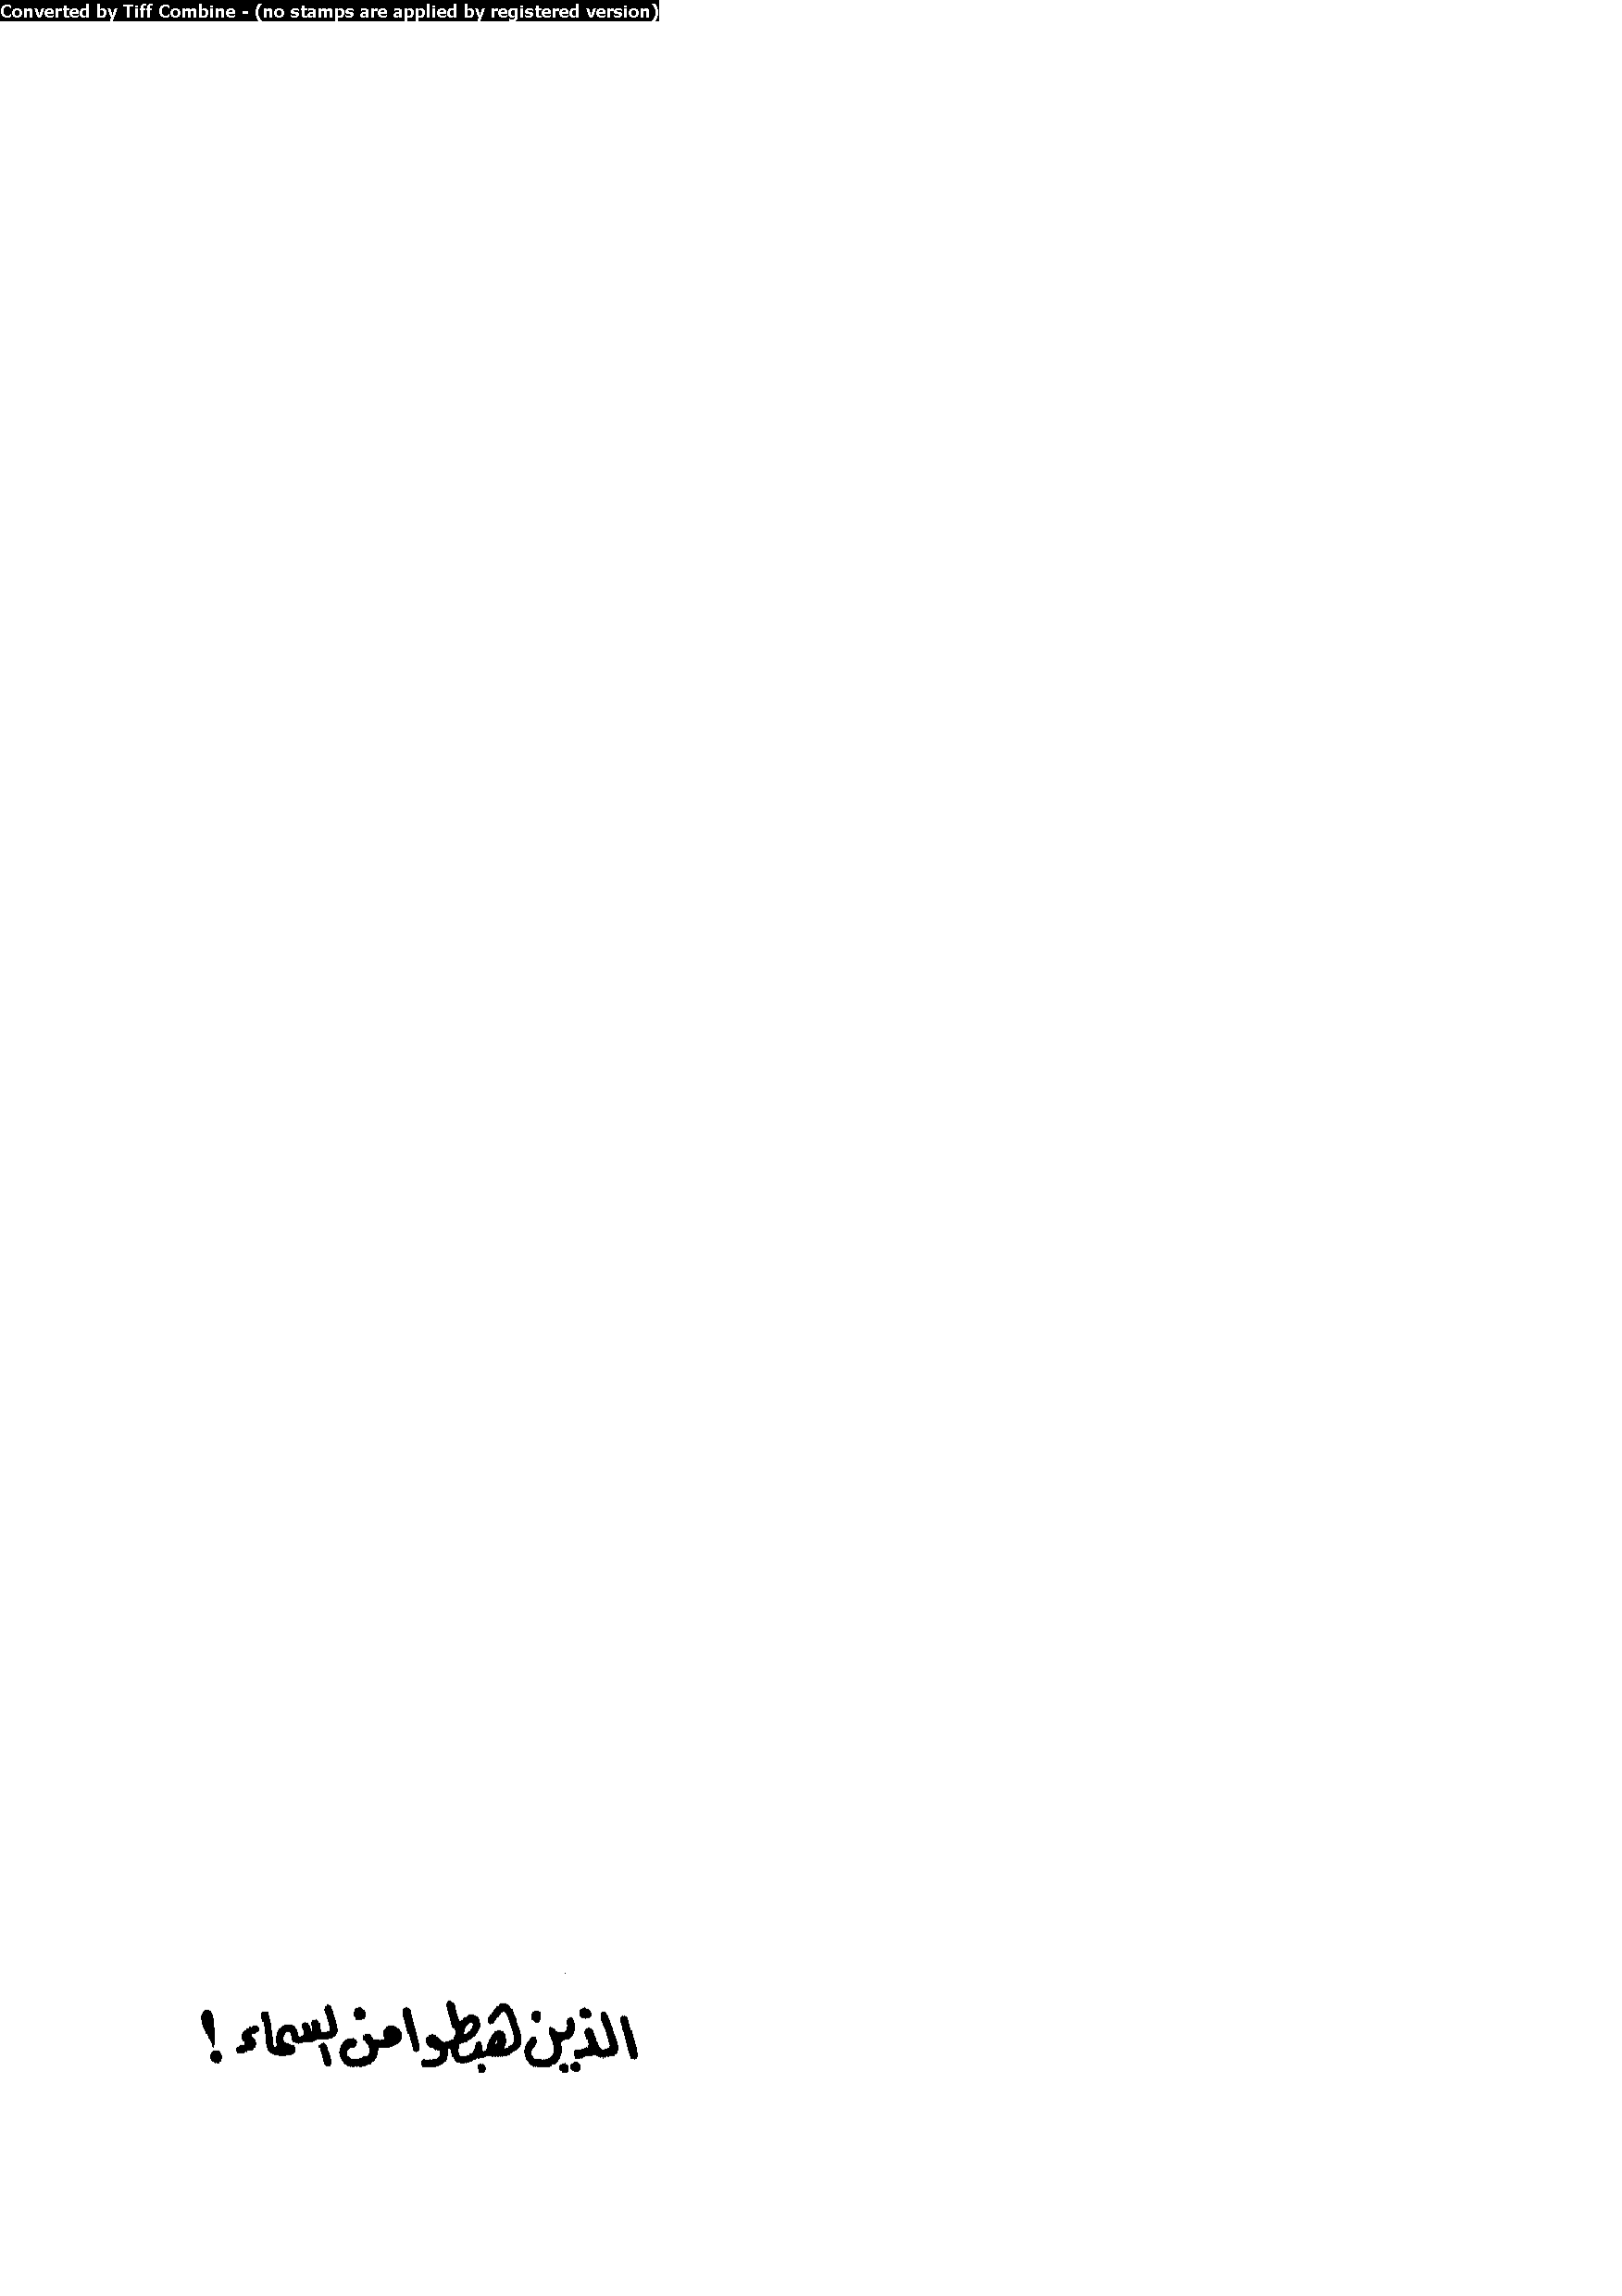 Converted by Tiff Combine - (no stamps are applied by registered version)
الذين هبطوا من السماء !